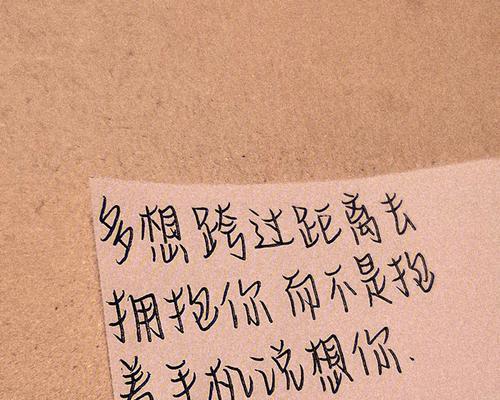 多想跨过距离去
拥抱你而不是抱
着手机说想你.